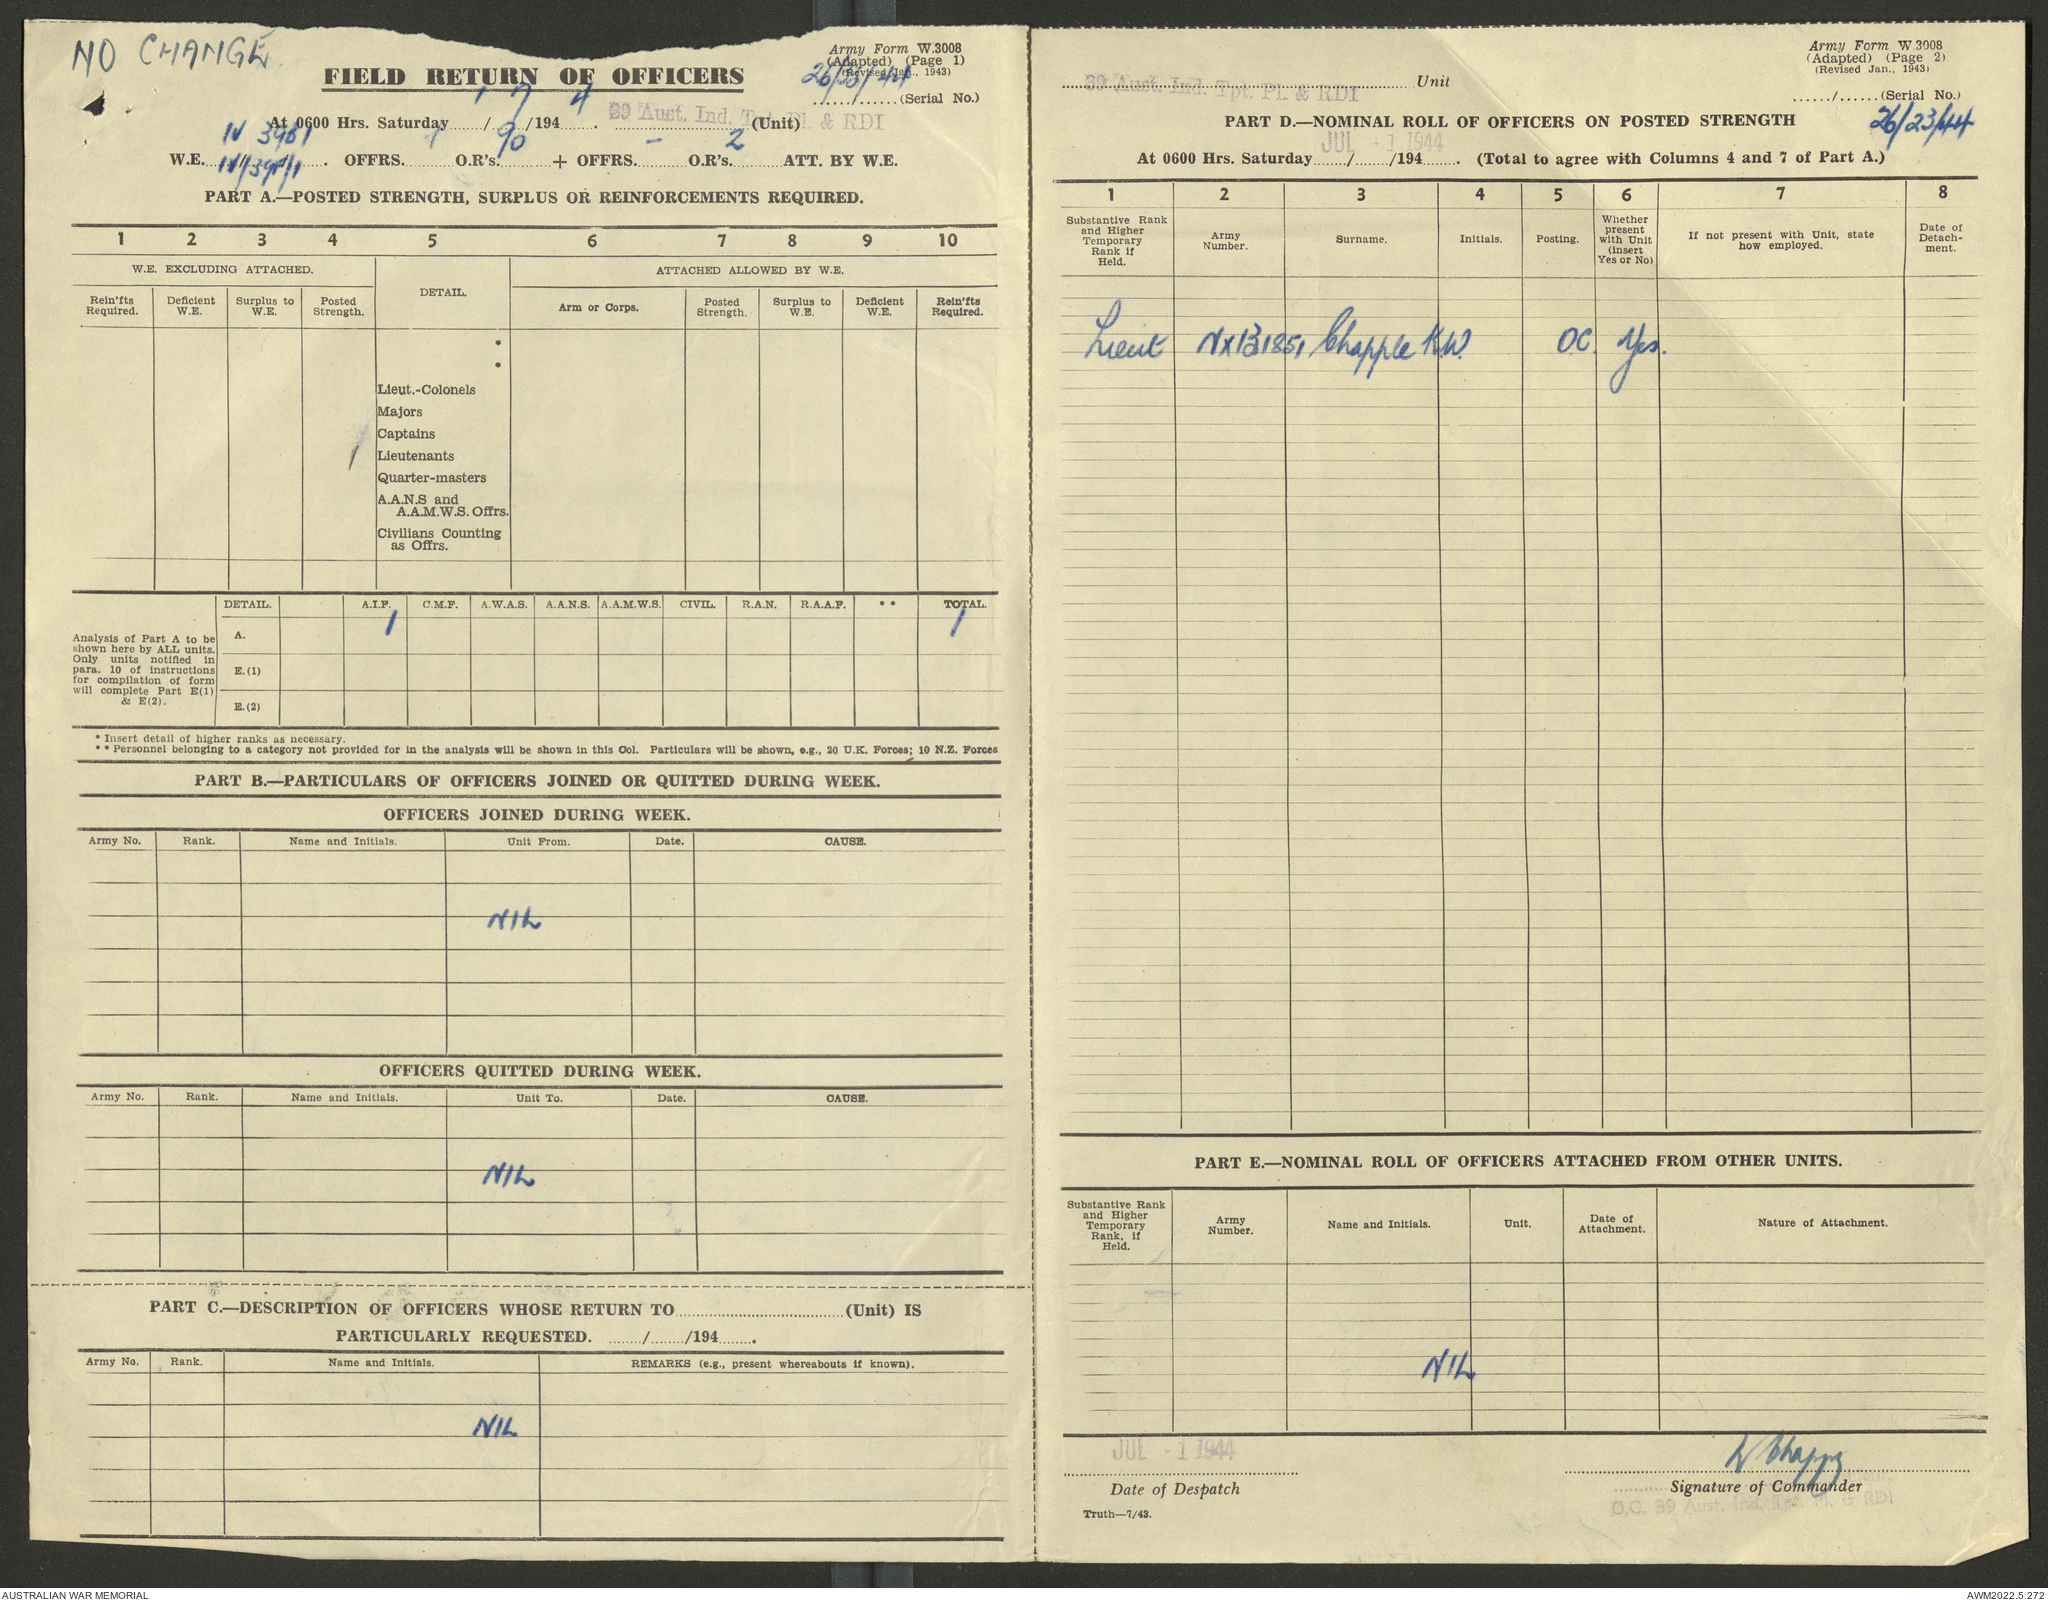 NO CHANGE
Army Form W.3008
(Adapted) (Page 1)
(Revised Jan., 1943)
FIELD RETURN OF OFFICERS
....../......(Serial No.)
At 0600 Hrs. Saturday 1/7/1944. 39 Aust. Ind. Tpt. Pl. & RDI (Unit)
W.E. OFFRS. 1 O.R's. 90 + OFFRS. - O.R's. 2 ATT. BY W.E.
PART A.—POSTED STRENGTH, SURPLUS OR REINFORCEMENTS REQUIRED.
1 2 3 4 5 6 7 8 9 10
W.E. EXCLUDING ATTACHED. DETAIL. ATTACHED ALLOWED BY W.E.
Rein'fts Required. Deficient W.E. Surplus to W.E. Posted Strength. Arm or Corps. Posted Strength. Surplus to W.E. Deficient W.E. Rein'fts Required.
*
*
Lieut.-Colonels
Majors
Captains
1 Lieutenants
Quarter-masters
A.A.N.S and
A.A.M.W.S. Offrs.
Civilians Counting
as Offrs.
DETAIL. A.I.F. C.M.F. A.W.A.S. A.A.N.S. A.A.M.W.S. CIVIL. R.A.N. R.A.A.F. ** TOTAL.
Analysis of Part A to be
shown here by ALL units.
Only units notified in
para. 10 of instructions
for compilation of form
will complete Part E(1)
& E(2).
A. 1 1
E.(1)
E.(2)
* Insert detail of higher ranks as necessary.
** Personnel belonging to a category not provided for in the analysis will be shown in this Col. Particulars will be shown, e.g., 20 U.K. Forces; 10 N.Z. Forces
PART B.—PARTICULARS OF OFFICERS JOINED OR QUITTED DURING WEEK.
OFFICERS JOINED DURING WEEK.
Army No. Rank. Name and Initials. Unit From. Date. CAUSE.
NIL
OFFICERS QUITTED DURING WEEK.
Army No. Rank. Name and Initials. Unit To. Date. CAUSE.
NIL
PART C.—DESCRIPTION OF OFFICERS WHOSE RETURN TO..............................(Unit) IS
PARTICULARLY REQUESTED. ......./......./194.......
Army No. Rank. Name and Initials. REMARKS (e.g., present whereabouts if known).
NIL
Army Form W.3008
(Adapted) (Page 2)
(Revised Jan., 1943)
39 Aust. Ind. Tpt. Pl. & RDI Unit
....../......(Serial No.)
26/23/44
PART D.—NOMINAL ROLL OF OFFICERS ON POSTED STRENGTH
JUL -1 1944
At 0600 Hrs. Saturday....../....../194....... (Total to agree with Columns 4 and 7 of Part A.)
1 2 3 4 5 6 7 8
Substantive Rank and Higher Temporary Rank if Held. Army Number. Surname. Initials. Posting. Whether present with Unit (insert Yes or No) If not present with Unit, state how employed. Date of Detach-ment.
Lieut NX131851 Chapple K.W. O.C. Yes.
PART E.—NOMINAL ROLL OF OFFICERS ATTACHED FROM OTHER UNITS.
Substantive Rank and Higher Temporary Rank, if Held. Army Number. Name and Initials. Unit. Date of Attachment. Nature of Attachment.
NIL
JUL -1 1944
Date of Despatch
Signature of Commander
O.C. 39 Aust. Ind. Tpt. Pl. & RDI
Truth—7/43.
AUSTRALIAN WAR MEMORIAL
AWM2022.5.272